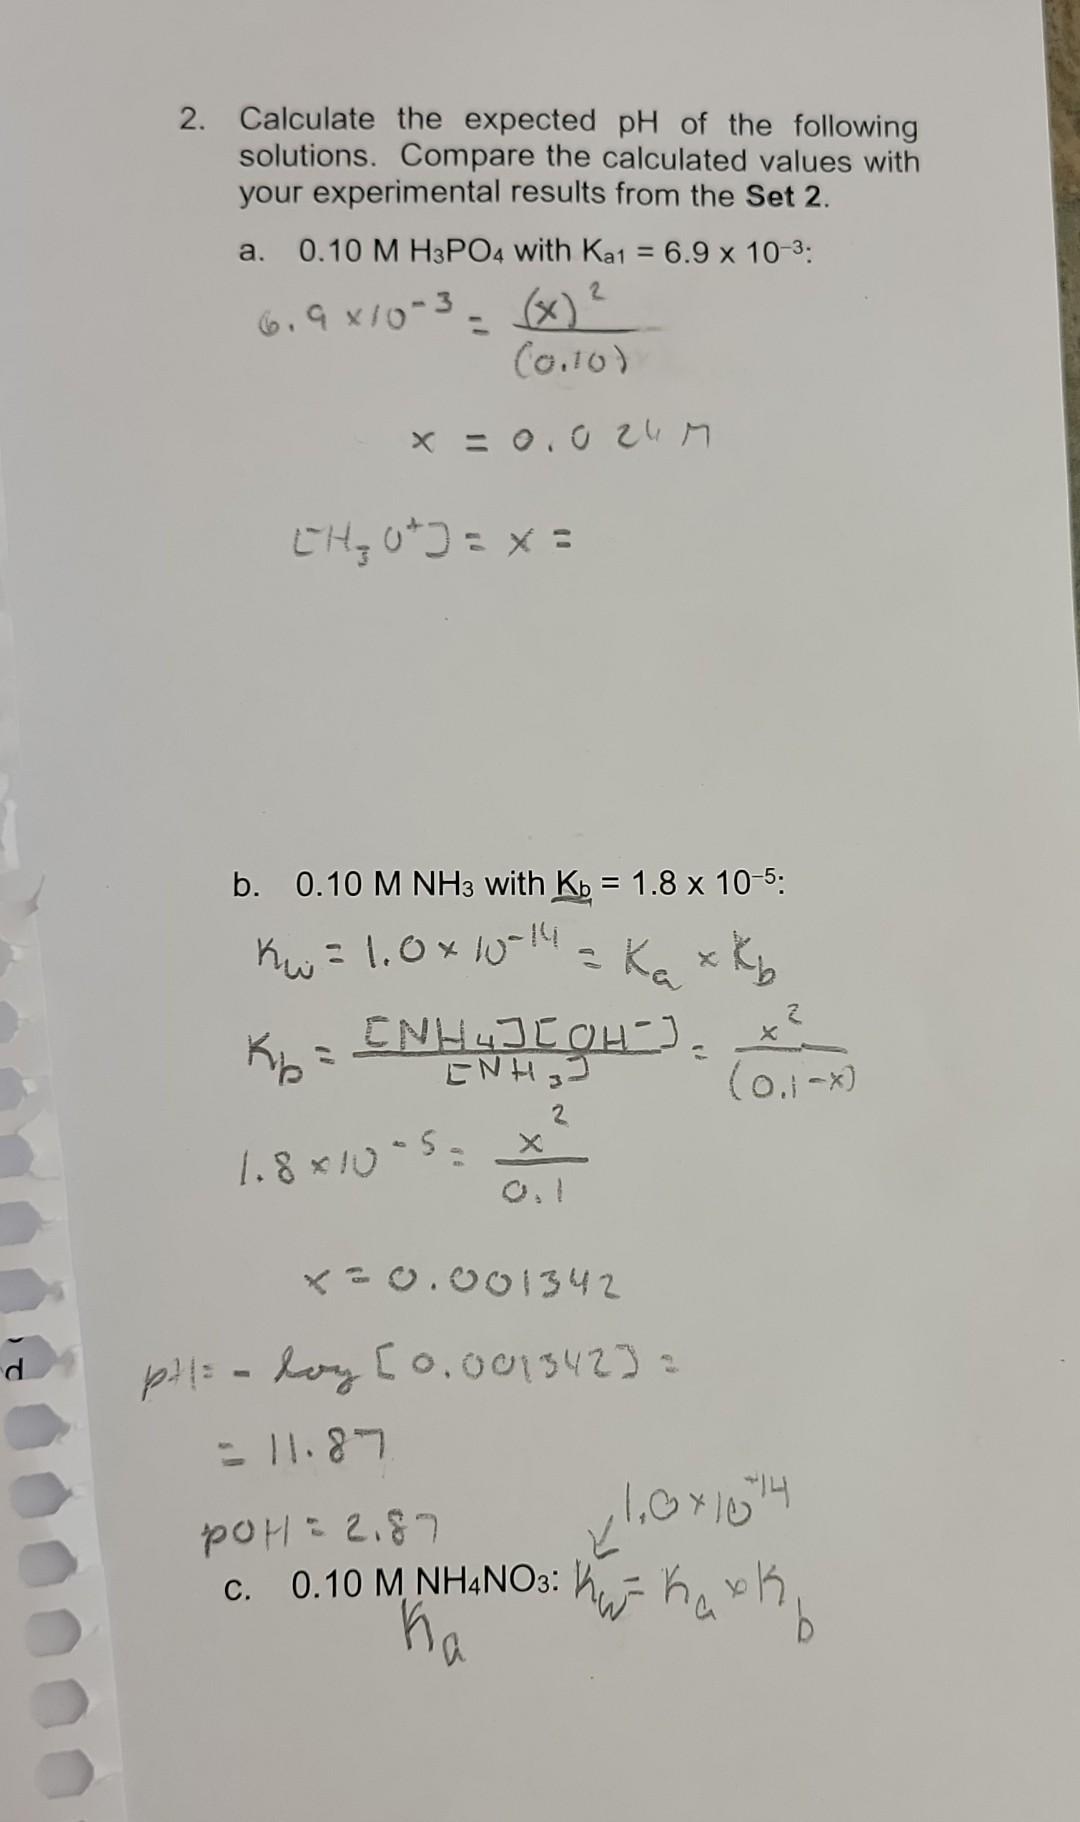 2. Calculate the expected pH of the following
solutions. Compare the calculated values with
your experimental results from the Set 2.
a. 0.10 M H3PO4 with Ka1 = 6.9 x 10–3:
6.9 x10-3 = (x)2
(0.10)
x = 0.024 M
[H3O+] = x =
b. 0.10 M NH3 with Kb = 1.8 x 10–5:
Kw = 1.0 x 10-14 = Ka x Kb
Kb = [NH4][OH-] = x2
[NH3] (0.1-x)
1.8 x10-5 = x2
0.1
x = 0.001342
d
pH = - log [0.001342] =
= 11.87
1.0 x 10-14
pOH = 2.87
c. 0.10 M NH4NO3: Kw = Ka x Kb
Ka